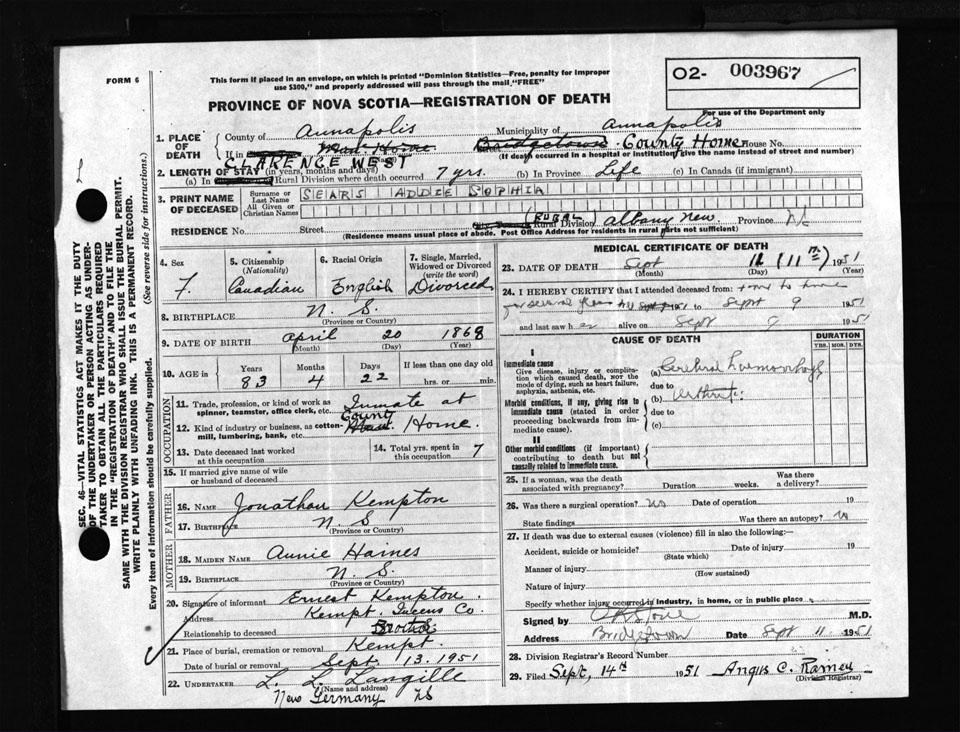 FORM 6
This form if placed in an envelope, on which is printed "Dominion Statistics—Free, penalty for improper
use $300," and properly addressed will pass through the mail "FREE"
02- 003967
For use of the Department only
PROVINCE OF NOVA SCOTIA—REGISTRATION OF DEATH
1. PLACE OF DEATH
County of Annapolis Municipality of Annapolis
If in Mun. Home Street Bridgetown County Home House No.
(If death occurred in a hospital or institution give the name instead of street and number)
CLARENCE WEST
2. LENGTH OF STAY (in years, months and days)
(a) In Rural Division where death occurred 7 yrs. (b) In Province Life (c) In Canada (if immigrant)
3. PRINT NAME OF DECEASED
Surname or Last Name
All Given or Christian Names
SEARS ADDIE SOPHIA
RESIDENCE No. Street (RURAL Rural Division Albany New Province N/S
(Residence means usual place of abode. Post Office Address for residents in rural parts not sufficient)
4. Sex
F.
5. Citizenship
(Nationality)
Canadian
6. Racial Origin
English
7. Single, Married,
Widowed or Divorced
(write the word)
Divorced
8. BIRTHPLACE N. S.
(Province or Country)
9. DATE OF BIRTH April 20 1868
(Month) (Day) (Year)
10. AGE in
Years Months Days If less than one day old
83 4 22 hrs. or min.
OCCUPATION
11. Trade, profession, or kind of work as
spinner, teamster, office clerk, etc. Inmate at
County
12. Kind of industry or business, as cotton-
mill, lumbering, bank, etc. Home.
13. Date deceased last worked
at this occupation
14. Total yrs. spent in
this occupation 7
15. If married give name of wife
or husband of deceased
FATHER
16. NAME Jonathan Kempton
17. BIRTHPLACE N. S
(Province or Country)
MOTHER
18. MAIDEN NAME Annie Haines
19. BIRTHPLACE N. S.
(Province or Country)
20. Signature of informant Ernest Kempton.
Address Kempt. Queens Co.
Relationship to deceased Brother
21. Place of burial, cremation or removal Kempt.
Date of burial or removal Sept. 13. 1951
22. UNDERTAKER L. L. Langille
(Name and address)
New Germany NS
MEDICAL CERTIFICATE OF DEATH
23. DATE OF DEATH Sept 11 (11th) 1951
(Month) (Day) (Year)
24. I HEREBY CERTIFY that I attended deceased from time to time
for several years 1951 to Sept 9 1951
and last saw her alive on Sept 9 1951
CAUSE OF DEATH
DURATION
YRS. MOS. DYS.
I
Immediate cause
Give disease, injury or complica-
tion which caused death, not the
mode of dying, such as heart failure,
asphyxia, asthenia, etc.
(a) Cerebral Hemorrhage
due to
Morbid conditions, if any, giving rise to
immediate cause (stated in order
proceeding backwards from im-
mediate cause).
(b) Arthritis
due to
(c)
II
Other morbid conditions (if important)
contributing to death but not
causally related to immediate cause.
25. If a woman, was the death
associated with pregnancy? Duration weeks. Was there
a delivery?
26. Was there a surgical operation? No Date of operation 19
State findings Was there an autopsy? No
27. If death was due to external causes (violence) fill in also the following:—
Accident, suicide or homicide? Date of injury 19
(State which)
Manner of injury
(How sustained)
Nature of injury
Specify whether injury occurred in industry, in home, or in public place
Signed by M.D.
Address Bridgetown Date Sept 11 1951
28. Division Registrar's Record Number
29. Filed Sept. 14th 1951 Angus C. Ramey
(Division Registrar)
SEC. 46—VITAL STATISTICS ACT MAKES IT THE DUTY
OF THE UNDERTAKER OR PERSON ACTING AS UNDER-
TAKER TO OBTAIN ALL THE PARTICULARS REQUIRED
IN THE "REGISTRATION OF DEATH" AND TO FILE THE
SAME WITH THE DIVISION REGISTRAR WHO SHALL ISSUE THE BURIAL PERMIT.
WRITE PLAINLY WITH UNFADING INK. THIS IS A PERMANENT RECORD.
Every item of information should be carefully supplied. (See reverse side for instructions.)